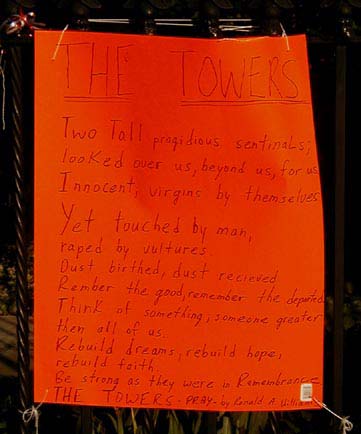 THE TOWERS
Two Tall progidious sentinals;
looked over us, beyond us, for us
Innocent, virgins by themselves
Yet touched by man,
raped by vultures.
Dust birthed, dust recieved
Rember the good, remember the departed
Think of something, someone greater
then all of us.
Rebuild dreams, rebuild hope,
rebuild faith
Be strong as they were in Remembrance
THE TOWERS - PRAY - by Ronald A. William